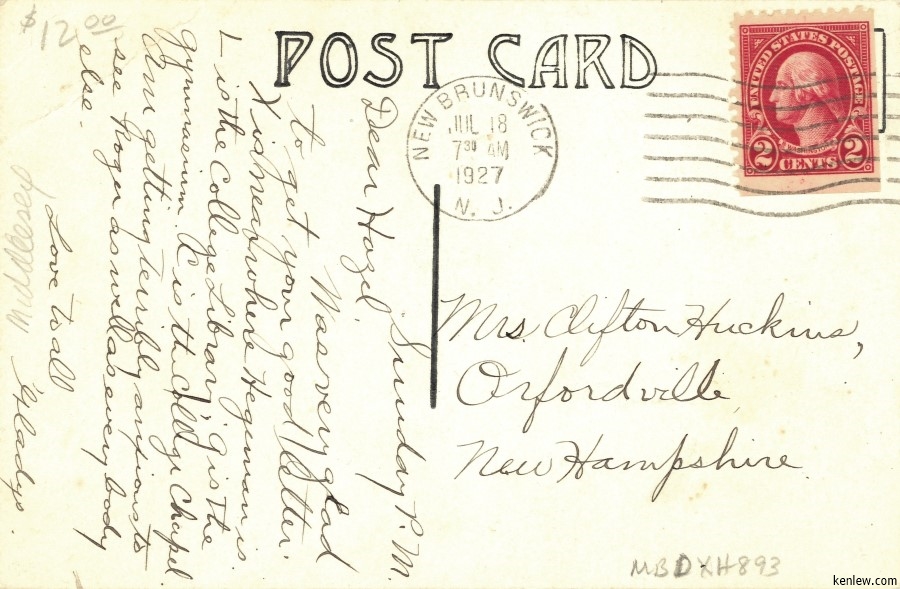 $12.00
POST CARD
NEW BRUNSWICK
JUL 18
7 30 AM
1927
N. J.
UNITED STATES POSTAGE
WASHINGTON
2 CENTS 2
Sunday P.M.
Dear Hazel,
Was very glad
to get your good letter.
X is near where Hegeman is.
L is the College Library, g is the
gymnasium. C is the College Chapel.
Am getting terribly anxious to
see Roger as well as everybody
else.
Love to all
Gladys.
Middlesex
Mrs. Clifton Huckins,
Orfordville,
New Hampshire.
MBDXH893
kenlew.com